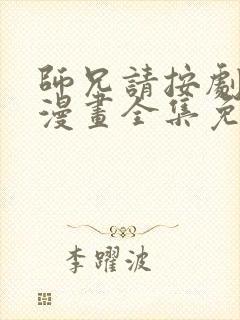 師兄請按劇
漫畫全集免
李躍波